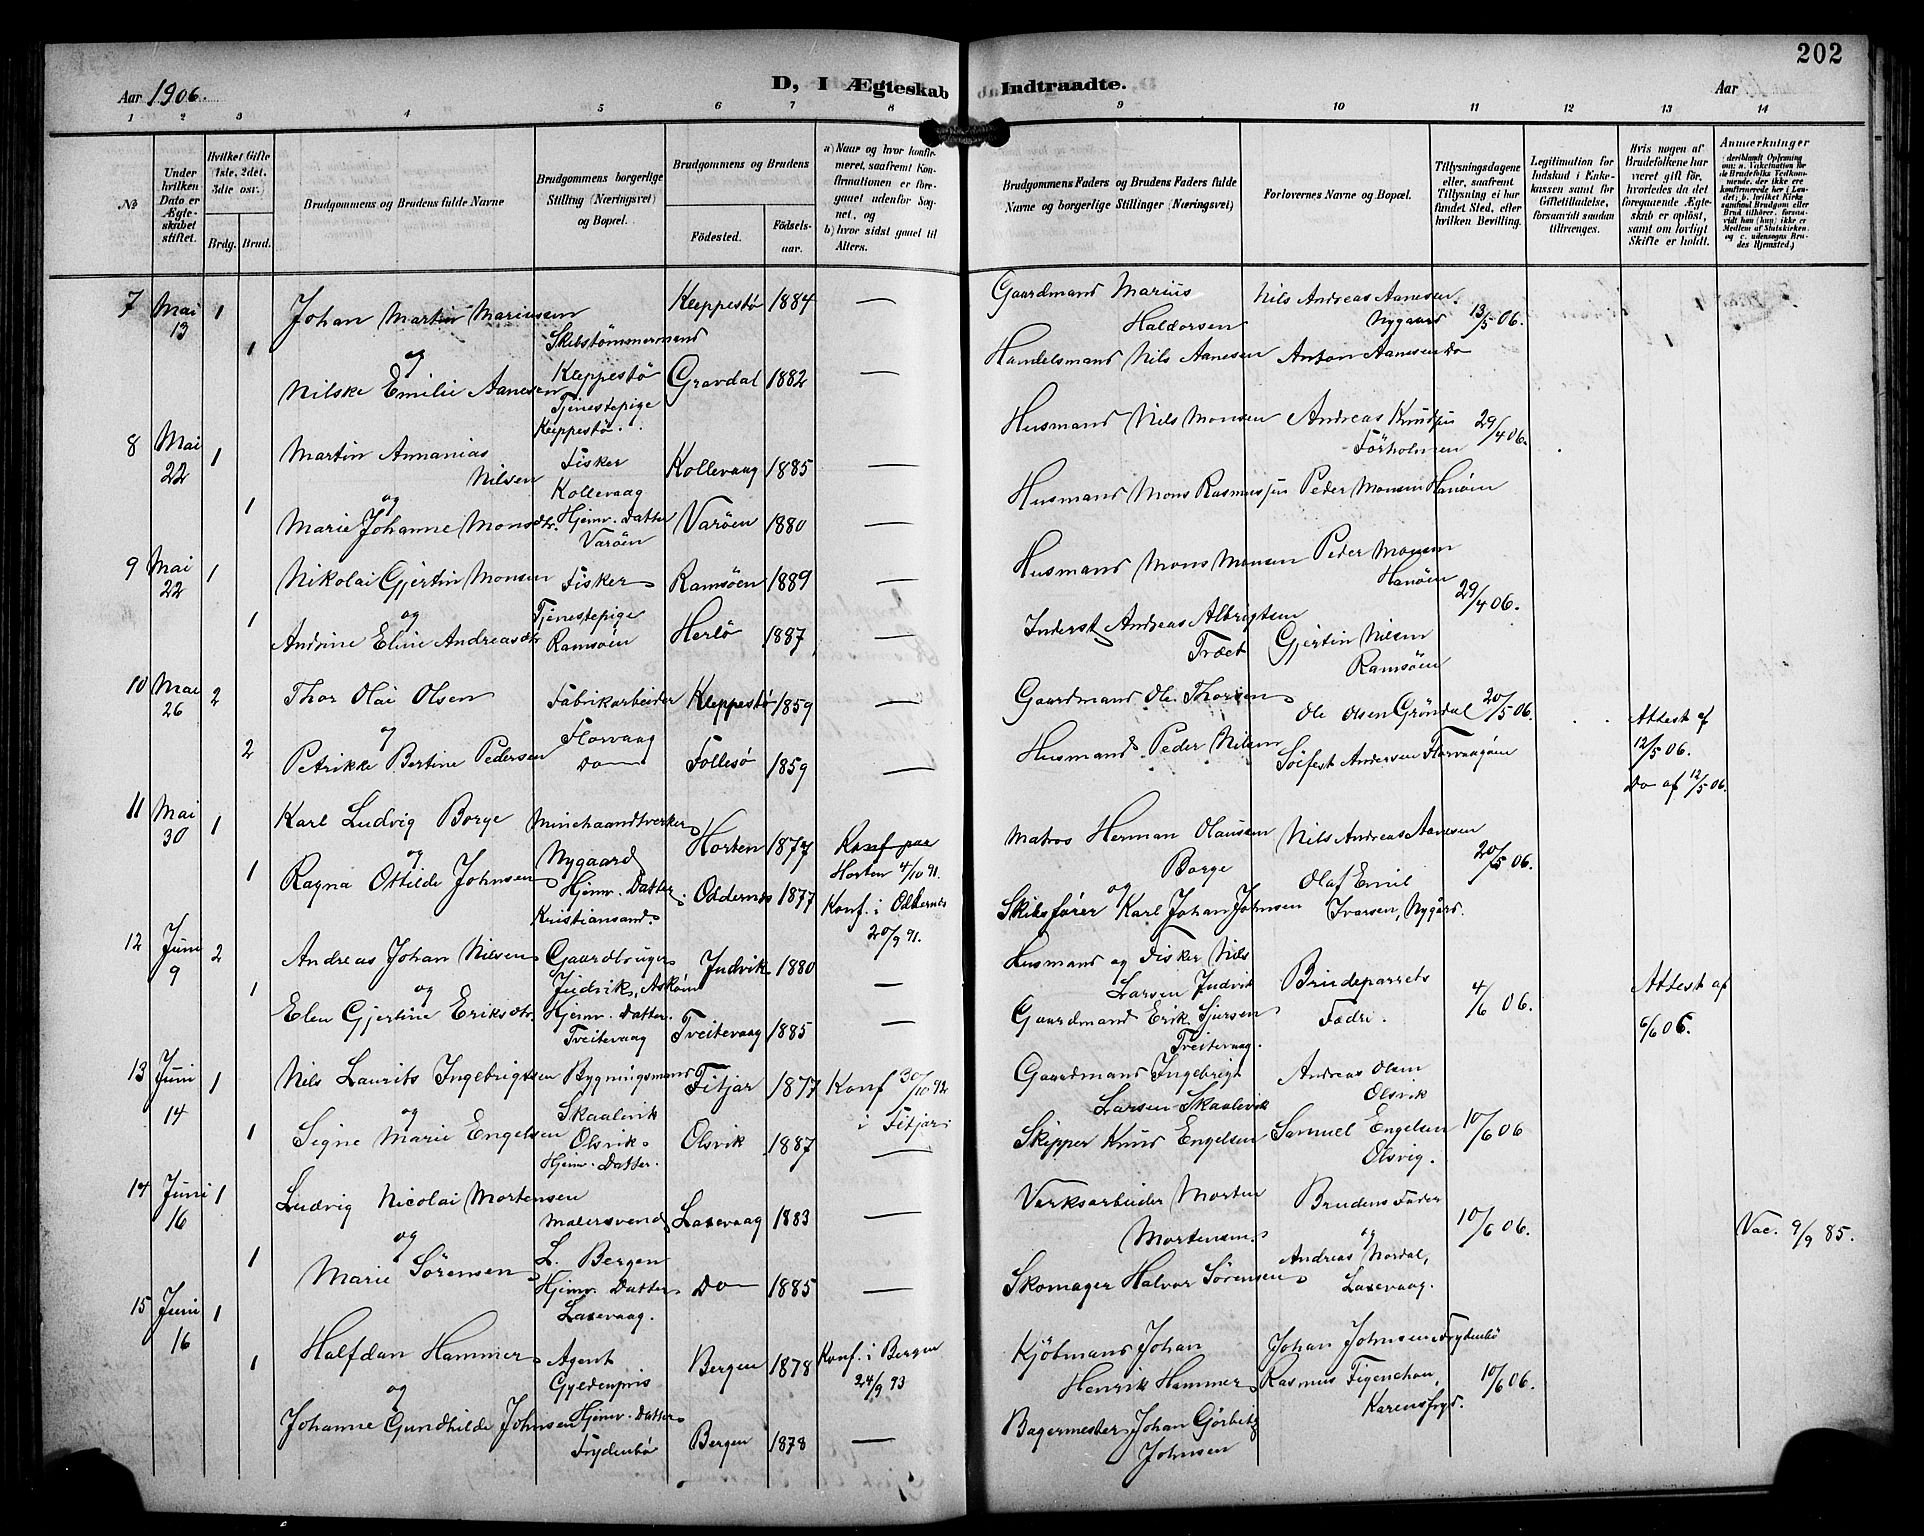 202
Aar 1906.
D, I Ægteskab Indtraadte.
Aar
1 2 3 4 5 6 7 8 9 10 11 12 13 14
No
Under hvilken Dato er Ægteskabet stiftet.
Hvilket Gifte (1ste, 2det, 3die osv.)
Brdg. Brud.
Brudgommens og Brudens fulde Navne
Brudgommens borgerlige Stilling (Næringsvei) og Bopæl.
Brudgommens og Brudens
Fødested.
Fødselsaar.
a) Naar og hvor konfirmeret, saafremt Konfirmationen er foregaaet udenfor Sognet, og b) hvor sidst gaaet til Alters.
Brudgommens Faders og Brudens Faders fulde Navne og borgerlige Stillinger (Næringsvei)
Forlovernes Navne og Bopæl.
Tillysningsdagene eller, saafremt Tillysning ei har fundet Sted, efter hvilken Bevilling.
Legitimation for Indskud i Enkekassen samt for Giftetilladelse, forsaavidt saadan tiltrænges.
Hvis nogen af Brudefolkene har været gift før, hvorledes da det foregaaende Ægteskab er opløst, samt om lovligt Skifte er holdt.
Anmerkninger
7 Mai 13 1 Johan Martin Mariusen Skibstømmermand Kleppestø Kleppestø 1884 — Gaardmand Marius Haldorsen Nils Andreas Aanesen Nygaard 13/5 06.
og
1 Nilske Emilie Aanesen Tjenestepige Kleppestø. Gravdal 1882 — Handelsmand Nils Aanesen Anton Aanesen Do
8 Mai 22 1 Martin Annanias Nilsen Fisker Kollevaag Kollevaag 1885 — Husmand Nils Monsen Andreas Knudsen 29/4 06.
og
1 Marie Johanne Monsdtr. Hjemv. Datter Varöen Varöen 1880 — Husmand Mons Rasmussen Peder Monsen Hanöen
9 Mai 22 1 Nikolai Gjertin Monsen Fisker Ramsöen 1889 — Husmand Mons Monsen Peder Monsen Hanöen 29/4 06.
og
1 Andrine Eline Andreasdtr Tjenestepige Ramsöen Herlö 1887 — Inderst Andreas Albrigtsen Træet Gjertin Nilsen Ramsöen
10 Mai 26 2 Thor Olai Olsen Fabrikarbeider Florvaag Kleppestø 1859 — Gaardmand Ole Thorsen Ole Olsen Gröndal 20/5 06. Attest af 12/5 06.
og
2 Petrikke Bertine Pedersen Do Follesø 1859 — Husmand Peder Nilsen Sölfest Andersen Florvaagöen Do af 12/5 06.
11 Mai 30 1 Karl Ludvig Borge Minehaandtverker Nygaard Horten 1877 Konf. paa Horten 4/10 91. Matros Herman Olaussen Borge Nils Andreas Aanesen 20/5 06.
og
1 Ragna Ottilde Johnsen Hjemv. Datter Kristiansand Oddernes 1877 Konf. i Oddernes 20/9 91. Skibsfører Karl Johan Johnsen Olaf Emil Ivarsen, Nygård.
12 Juni 9 2 Andreas Johan Nilsen Gaardbruger Judvik, Asköen Judvik 1880 — Husmand og Fisker Nils Larsen Judvik Brudeparrets Fædre. 4/6 06. Attest af 6/6 06.
og
1 Elen Gjertine Eriksdtr. Hjemv. Datter. Tveitevaag Tveitevaag 1885 — Gaardmand Erik Sjursen Tveitevaag.
13 Juni 14 1 Nils Laurits Ingebrigtsen Bygningsmand Skaalevik Fitjar 1877 Konf 30/10 92 i Fitjar Gaardmand Ingebrigt Larsen Skaalevik Andreas Olsen Olsvik 10/6 06
og
1 Signe Marie Engelsen Olsvik Hjemv. Datter. Olsvik 1887 — Skipper Knud Engelsen Samuel Engelsen Olsvig.
14 Juni 16 1 Ludvig Nicolai Mortensen Malersvend L. Bergen Laxevaag 1883 — Verksarbeider Morten Mortensen. Brudens Fader 10/6 06. Vac. 9/9 85.
og
1 Marie Sörensen Hjemv. Datter Laxevaag. Do 1885 — Skomager Halvor Sörensen og Andreas Nordal, Laxevaag.
15 Juni 16 1 Halfdan Hammer Agent Gyldenpris Bergen 1878 Konf. i Bergen 24/9 93 Kjöbmand Johan Henrik Hammer Johan Johnsen Frydenbö 10/6 06.
og
1 Johanne Gundhilde Johnsen Hjemv. Datter Frydenbö Bergen 1878 — Bagermester Johan Görbitz Johnsen Rasmus Figenchou,